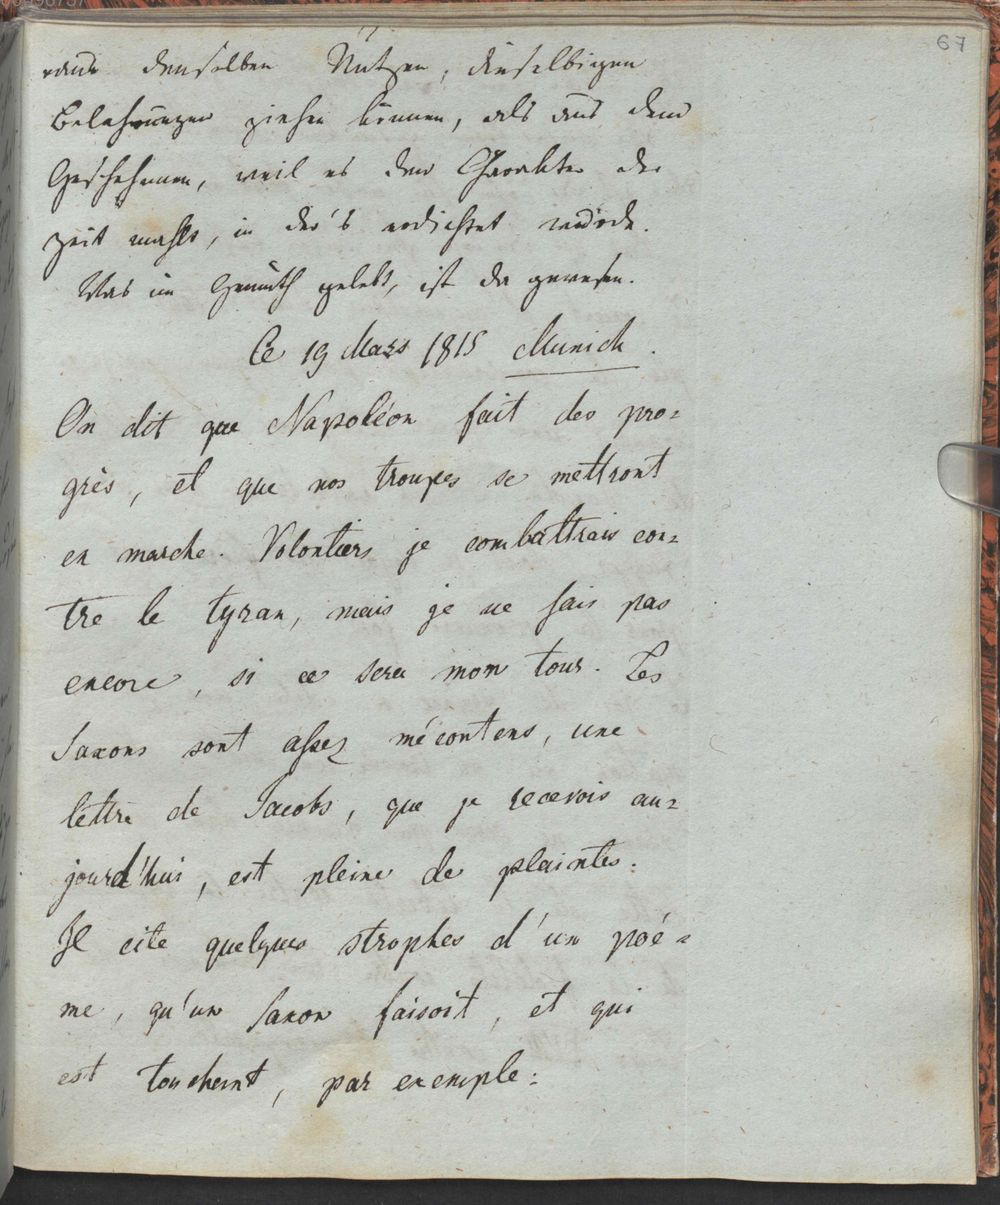 67
raus denselben Nutzen, dieselbigen
Belehrungen ziehen können, als aus dem
Geschehenen, weil es den Charakter der
Zeit mahlt, in der's erdichtet wurde.
Was im Gemüth gelebt, ist da gewesen.
Ce 19 Mars 1815 Munich.
On dit que Napoléon fait des pro=
grès, et que nos troupes se mettront
en marche. Volontiers je combattrais con=
tre le tyran, mais je ne sais pas
encore, si ce sera mon tour. Les
Saxons sont assez mécontens, une
lettre de Jacobs, que je recevois au=
jourd'hui, est pleine de plaintes.
Il cite quelques strophes d'un poé=
me, qu'un Saxon faisoit, et qui
est touchent, par exemple: